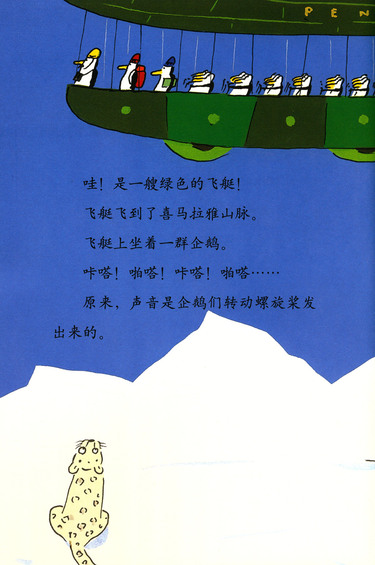 PEN
哇！是一艘绿色的飞艇！
飞艇飞到了喜马拉雅山脉。
飞艇上坐着一群企鹅。
咔嗒！啪嗒！咔嗒！啪嗒……
原来，声音是企鹅们转动螺旋桨发
出来的。